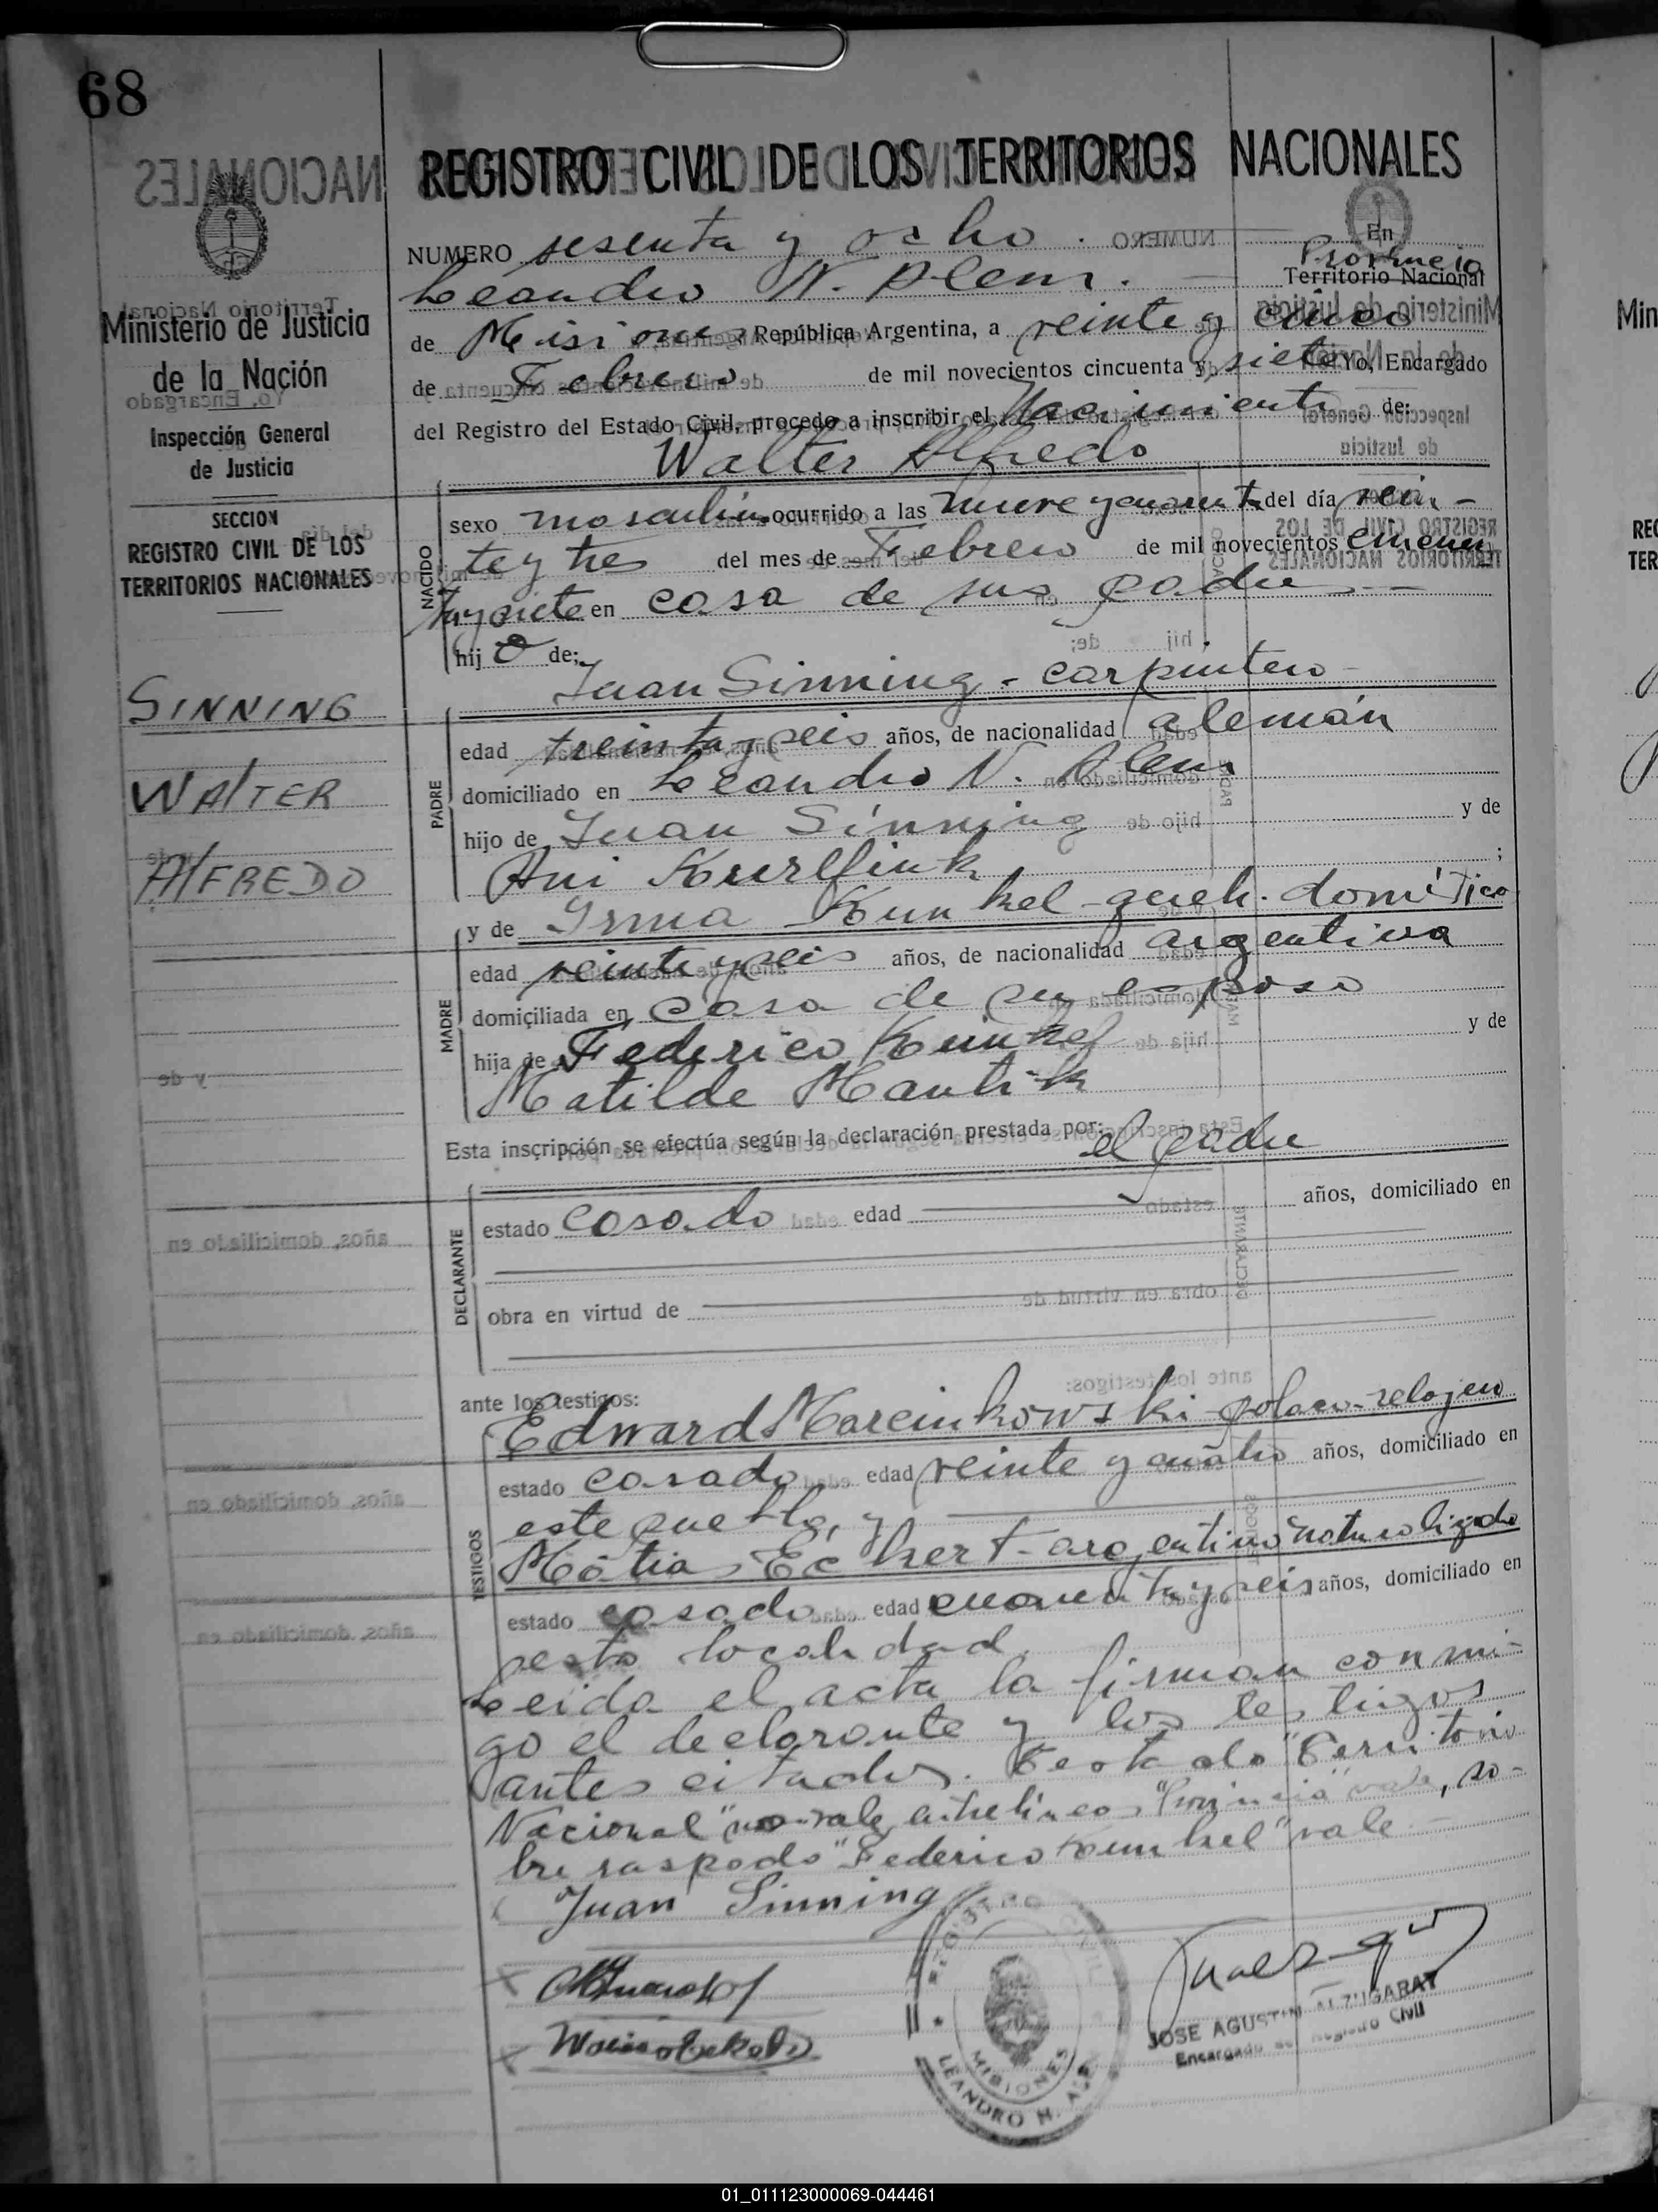 68
REGISTRO CIVIL DE LOS TERRITORIOS NACIONALES
NUMERO sesenta y ocho. En
Provincia
Leandro N. Alem. Territorio Nacional
de Misiones República Argentina, a veinte y cinco
de Febrero de mil novecientos cincuenta y siete Yo, Encargado
del Registro del Estado Civil, procedo a inscribir el Nacimiento de:
Walter Alfredo
Ministerio de Justicia
de la Nación
Inspección General
de Justicia
SECCION
REGISTRO CIVIL DE LOS
TERRITORIOS NACIONALES
SINNING
WALTER
ALFREDO
NACIDO
sexo masculino ocurrido a las nueve y cuarenta del día vein-
te y tres del mes de Febrero de mil novecientos cincuen
ta y siete en casa de sus padres --
hijo de:
Juan Sinning - carpintero -
PADRE
edad treinta y seis años, de nacionalidad alemán
domiciliado en Leandro N. Alem
hijo de Juan Sinning y de
Ani ;
y de Irma Kunkel - queh. doméstico
MADRE
edad veinte y seis años, de nacionalidad argentina
domiciliada en casa de su esposo
hija de Federico Kunkel y de
Matilde
Esta inscripción se efectúa según la declaración prestada por: el padre
DECLARANTE
estado casado edad años, domiciliado en
obra en virtud de
ante los testigos:
TESTIGOS
Edward Marcinkowski - polaco - relojero
estado casado edad veinte y cuatro años, domiciliado en
este pueblo, y
Matias Eckert - argentino naturalizado
estado casado edad cuarenta y seis años, domiciliado en
esta localidad.
Leida el acta la firman conmi-
go el declarante y los testigos
antes citados. Testado "Territorio
Nacional" no vale, entrelineas "Provincia" vale, so-
bre raspado "Federico Kunkel" vale -
Juan Sinning
REGISTRO CIVIL
MISIONES
LEANDRO N. ALEM
JOSE AGUSTIN ALZUGARAY
Encargado del Registro Civil
01_011123000069-044461